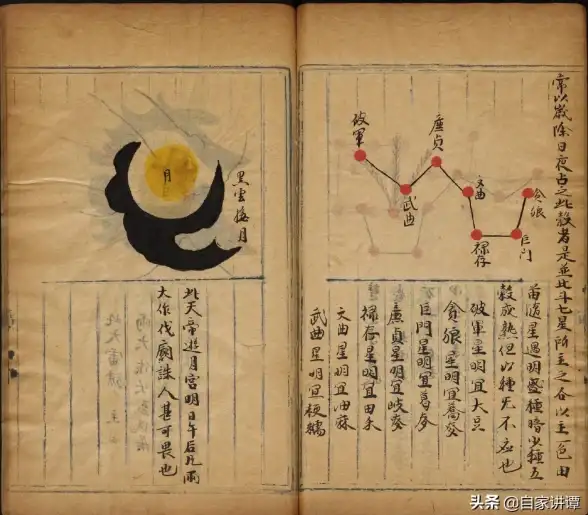 常以歲除日夜占之此穀者是並北斗七星所主之谷以主一色田
苗隨星遇明盛種暗少種五
穀成熟但以種无不應也
破軍
廉貞
武曲
文曲
貪狼
祿存
巨門
破軍星明宜大豆
貪狼星明宜蕎麥
巨門星明宜麥
廉貞星明宜麥
祿存星明宜田禾
文曲星明宜油麻
武曲星明宜粳糯
月
黑雲掩月
此天帝遊月宮明日午后雨
大作伐廟誅人甚可畏也
头条 @自家讲谭